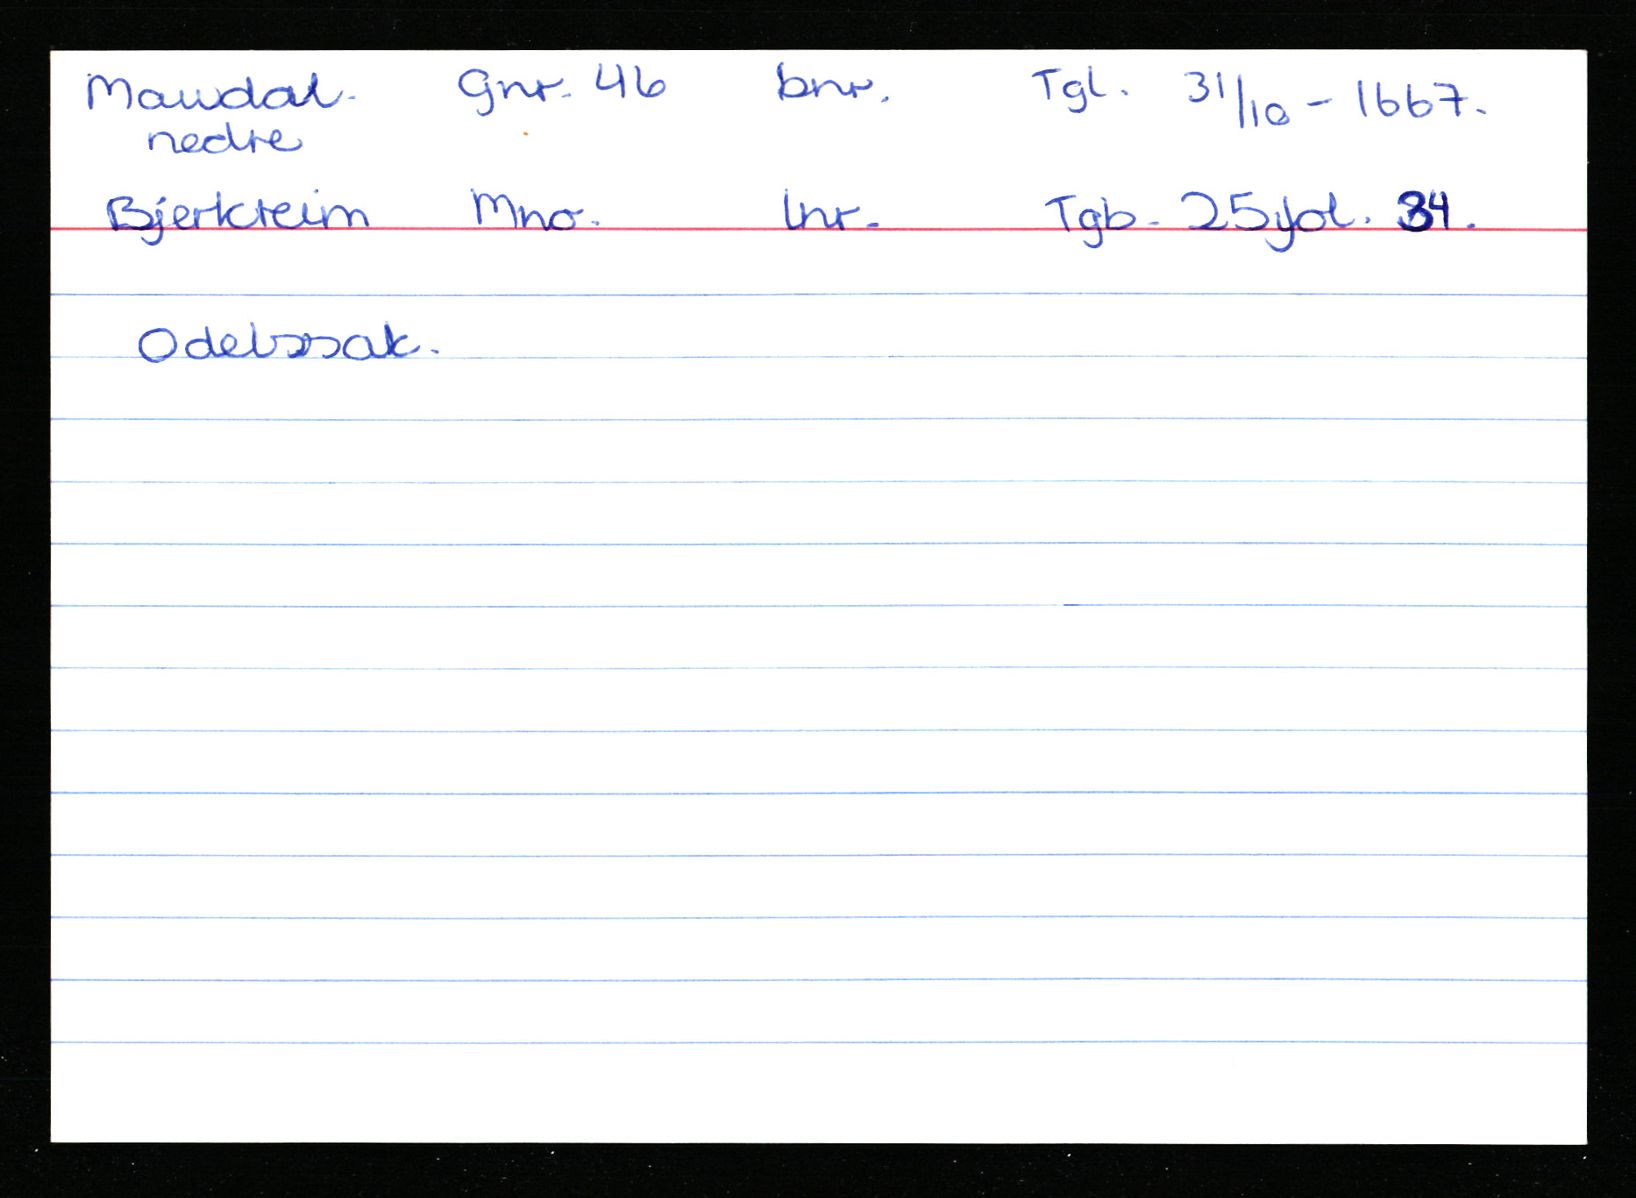 Maudal. Gnr. 46 bnr. Tgl. 31/10 - 1667.
nedre
Bjerkreim Mno. lnr. Tgb. 25 fol. 34.
Odelssak.